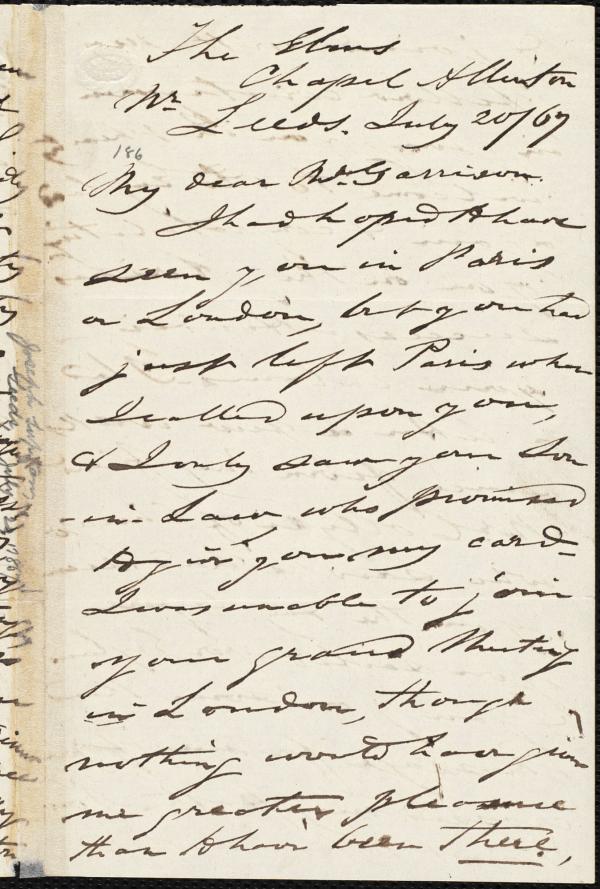 The Elms
Chapel Allerton
Nr. Leeds. July 20/67
186
My dear Mr. Garrison.
I had hoped to have
seen you in Paris
or London, but you had
just left Paris when
I called upon you,
& I only saw your Son
-in-Law who promised
to give you my card-
I was unable to join
your grand Meeting
in London, though
nothing would have given
me greater pleasure
than to have been there,